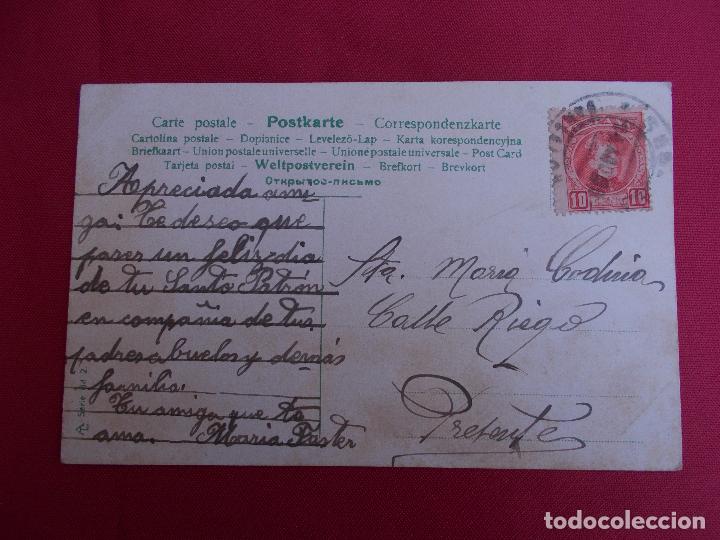 Carte postale – Postkarte – Correspondenzkarte
Cartolina postale – Dopisnice – Levelező-Lap – Karta korespondencyjna
Briefkaart – Union postale universelle – Unione postale universale – Post Card
Tarjeta postal – Weltpostverein – Brefkort – Brevkort
Открытое-письмо
10 10
Apreciada ami
ga: Te deseo que
pases un feliz dia
de tu Santo Patrón
en compañia de tus
padres abuelos y demás
familia.
Tu amiga que te
ama. Maria Paster
Sta. Maria Codina
Calle Riego
Presente
Serie
todocoleccion